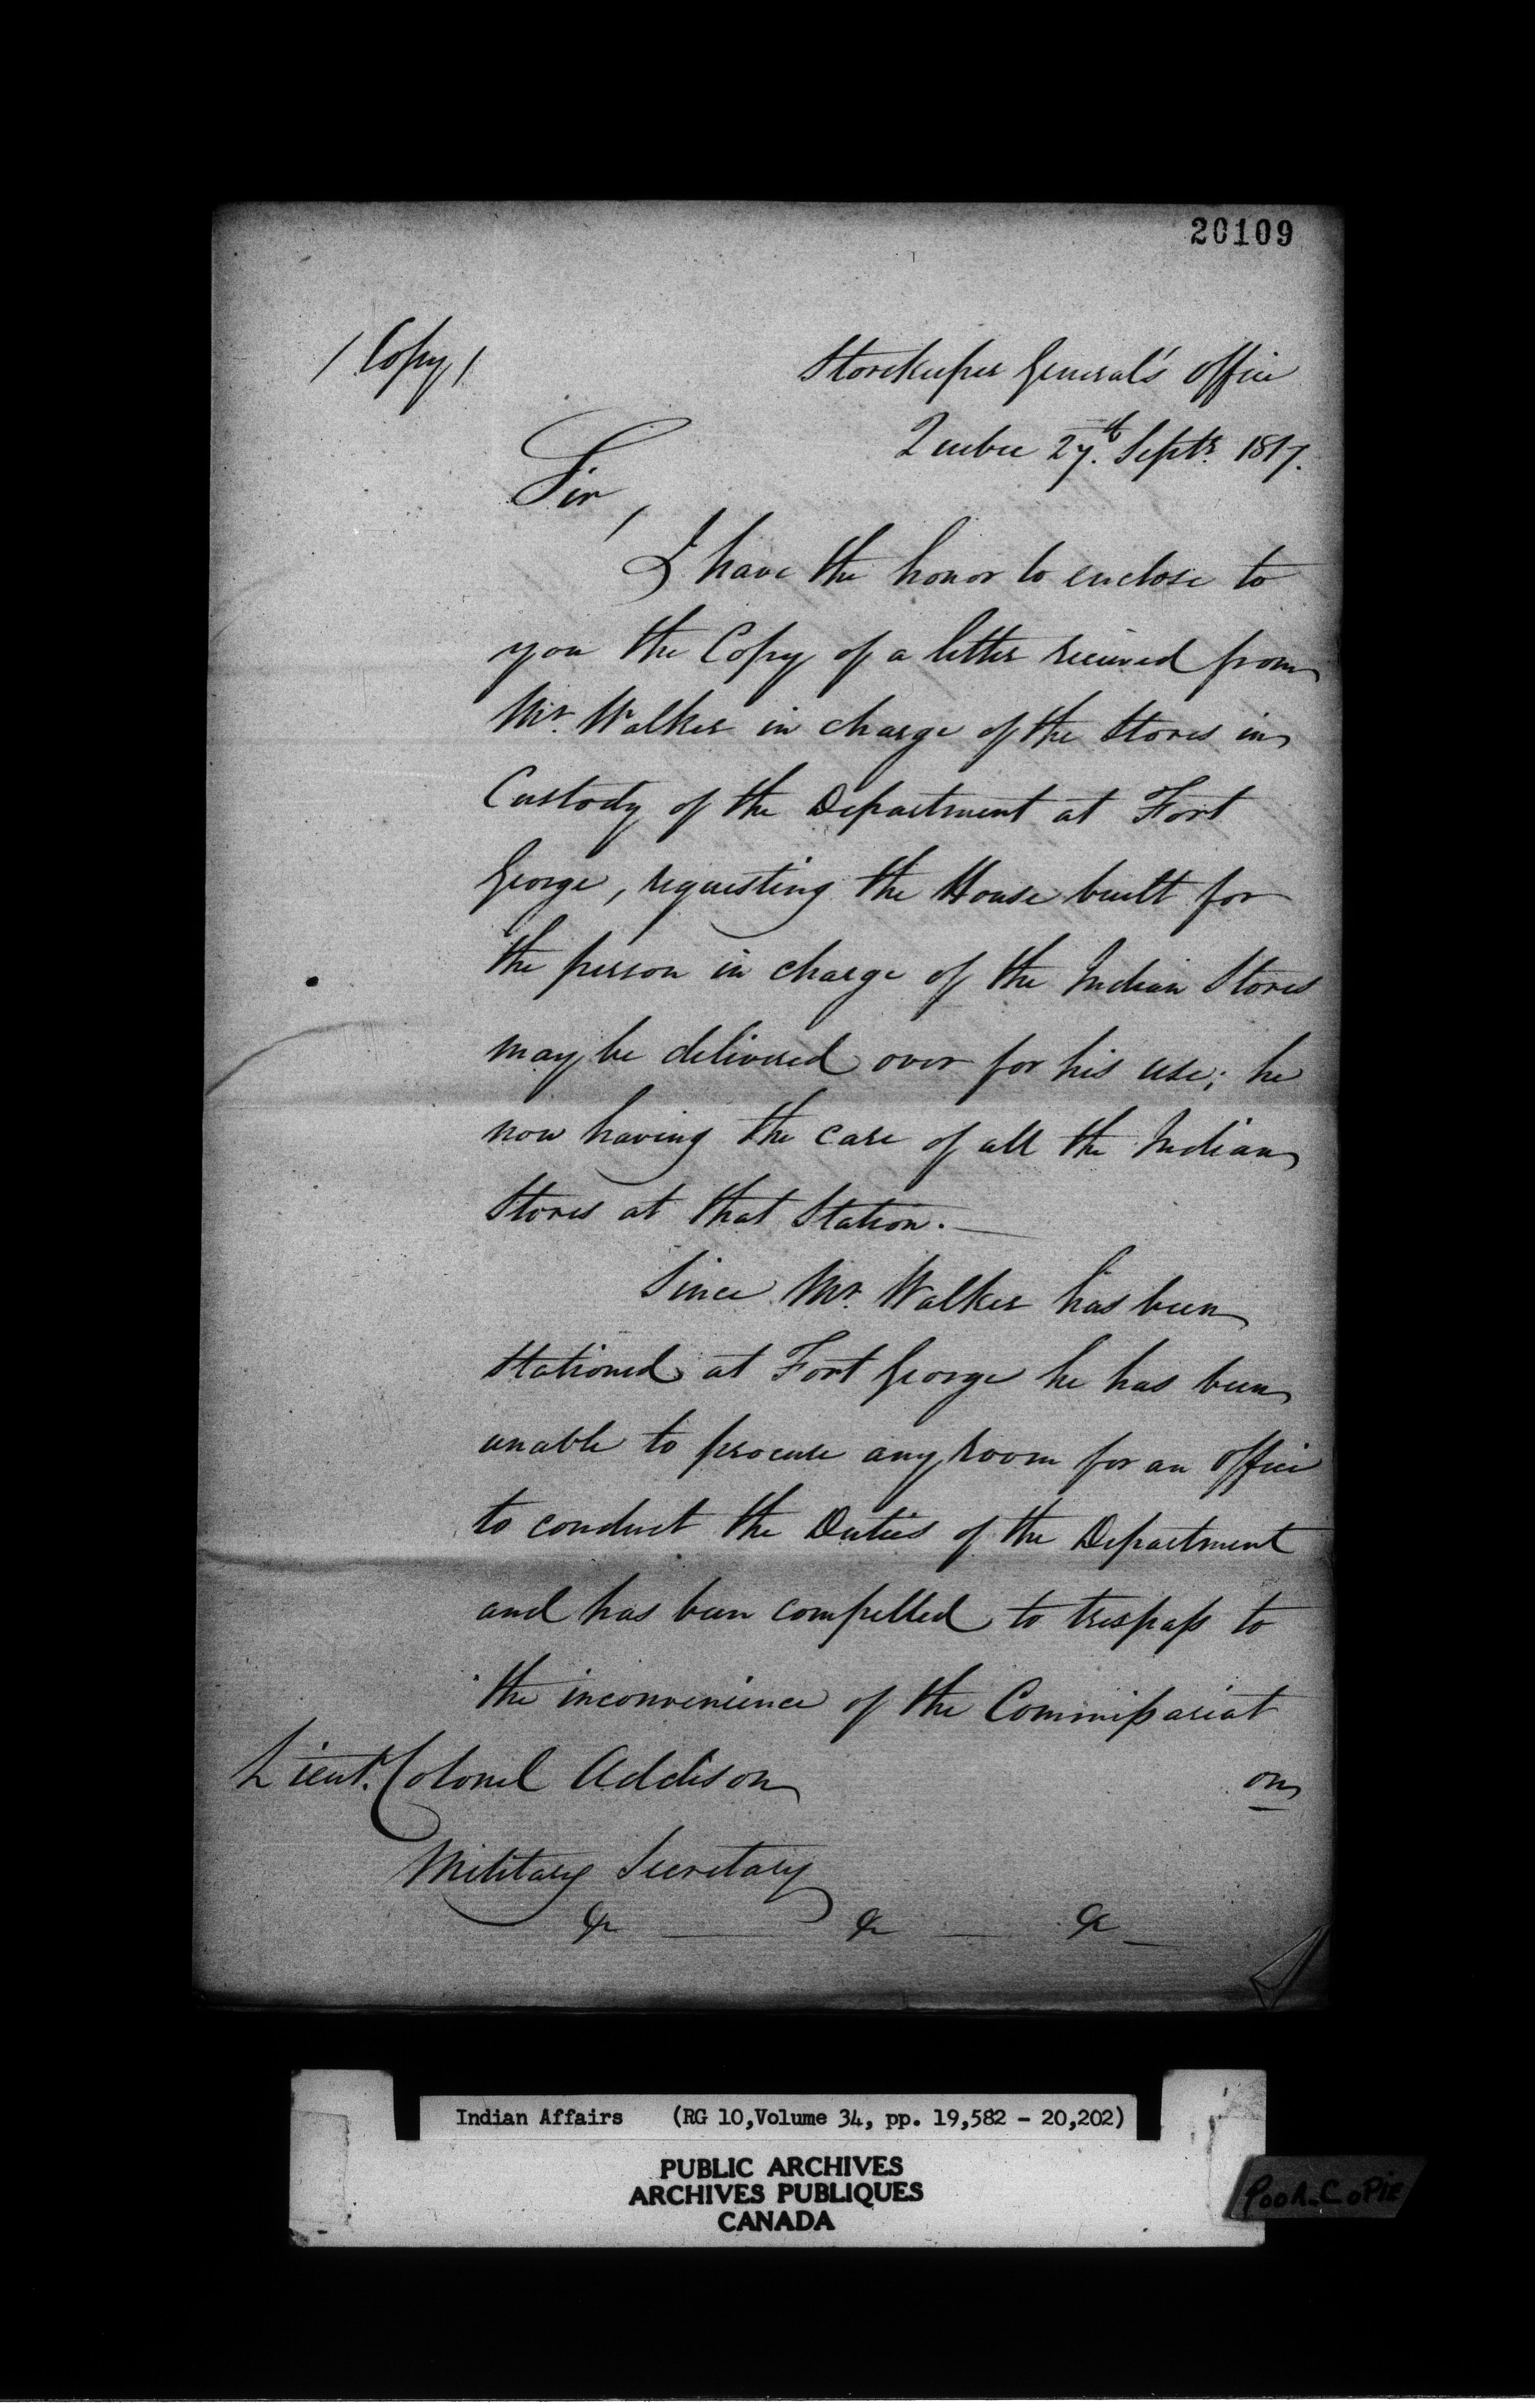 20109
/Copy/
Storekeeper General's Office
Quebec 27th. Septr. 1817.
Sir,
I have the honor to enclose to
you the Copy of a letter received from
Mr. Walker in charge of the Stores in
Custody of the Department at Fort
George, requesting the House built for
the person in charge of the Indian Stores
may be delivered over for his use; he
now having the care of all the Indian
Stores at that Station.—
Since Mr. Walker has been
stationed at Fort George he has been
unable to procure any room for an Office
to conduct the Duties of the Department
and has been compelled to trespass to
the inconvenience of the Commissariat
on
Lieut. Colonel Addison
Military Secretary
&c — &c — &c —
Indian Affairs (RG 10, Volume 34, pp. 19,582 - 20,202)
PUBLIC ARCHIVES
ARCHIVES PUBLIQUES
CANADA
POOR COPIE